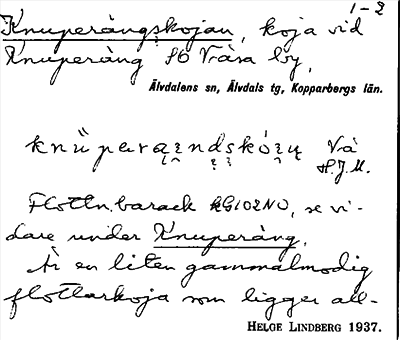 1-2
Knuperångskojan, koja vid
Knuperång SO Våsa by,
Älvdalens sn, Älvdals tg, Kopparbergs län.
Vå
H.J.M.
Flottn.barack RG102NO, se vi-
dare under Knuperång.
Är en liten gammalmodig
flottarkoja som ligger all-
HELGE LINDBERG 1937.